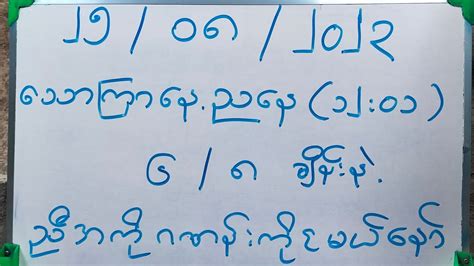 ၂၅ / ၀၈ / ၂၀၂၃
သောကြာနေ့ ညနေ (၁၂:၀၁)
၆ / ၈ ချိန်းနဲ့
ညီအကိုဂဏန်းကိုငမယ်နော်